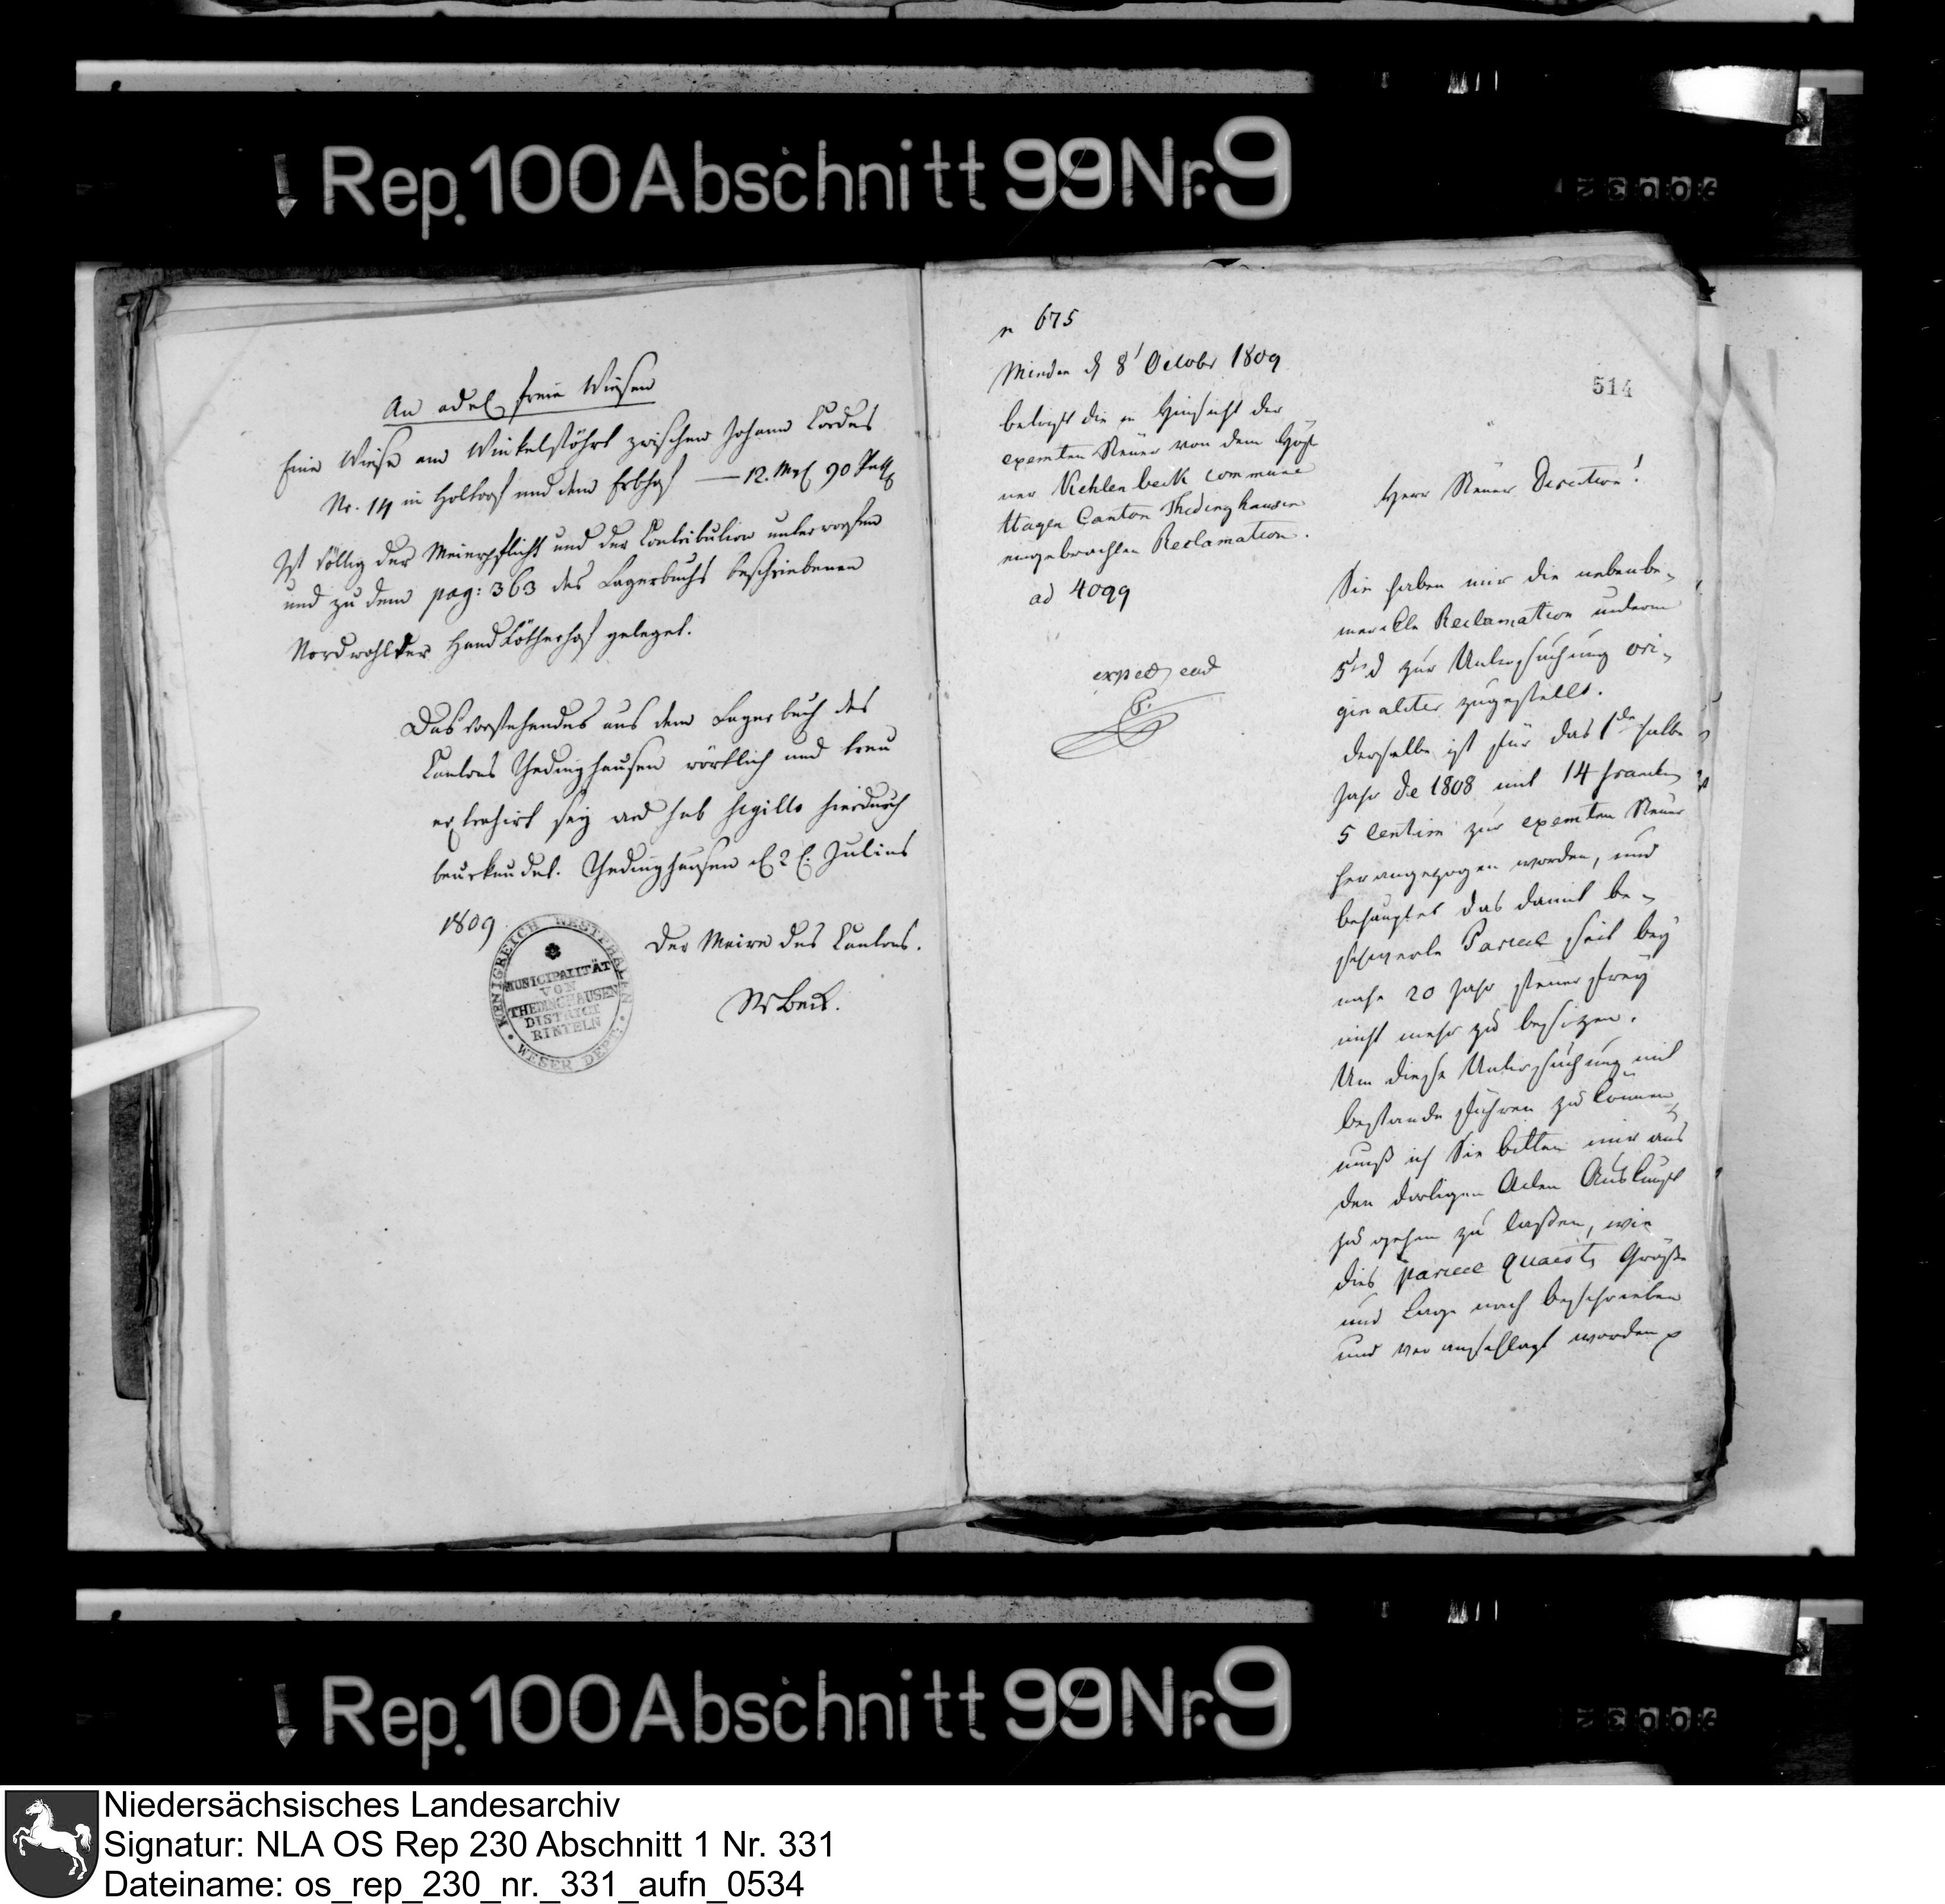 Rep. 100 Abschnitt 99 Nr. 9
An adel freie Wiesen
Eine Wiese am Winkelstöhrt zwischen Johann Cordes
Nr. 14 in Holtorf und dem Erbhof — 12.
Ist völlig der Meierpflicht und der Contribution unterworfen
und zu dem pag: 363 des Lagerbuchs beschriebenen
Nordwohlder Hand Köthnerhof gelegt.
Das vorstehendes aus dem Lagerbuch des
Cantons Thedinghausen wörtlich und treu
extrahirt sey wird sub sigillo hierdurch
beurkundet. Thedinghausen 2 Julius
1809
Der Maire des Cantons.
KŒNIGREICH WESTPHALEN
MUNICIPALITÄT
VON
THEDINGHAUSEN
DISTRICT
RINTELN
WESER DEPT.
n 675
Minden d 8 October 1809
betrifft die in Hinsicht der
exemten Steuer von dem
ner Kehlenbeck commune
Hagen Canton Thedinghausen
eingebrachten Reclamation.
ad 4099
exped. eod
514
Herr Steuer Director!
Sie haben mir die nebenbe-
merckte Reclamation unterm
5ten d zur Untersuchung ori-
ginaliter zugestellt.
derselbe ist für das 1te halbe
Jahr de 1808 mit 14 Francken
5 Centim zur exemten Steuer
herangezogen worden, und
behauptet das damit be-
schwerte Parcel seit bey
nahe 20 Jahr steuer frey
nicht mehr zu besitzen.
Um diese Untersuchung mit
bestande führen zu können
muß ich Sie bitten mir aus
den dortigen Acten Auskunft
zu gehen zu laßen, wie
dies Parcel quaest. Größe
und Lage nach beschrieben
und veranschlagt worden
Rep. 100 Abschnitt 99 Nr. 9
Niedersächsisches Landesarchiv
Signatur: NLA OS Rep 230 Abschnitt 1 Nr. 331
Dateiname: os_rep_230_nr._331_aufn_0534